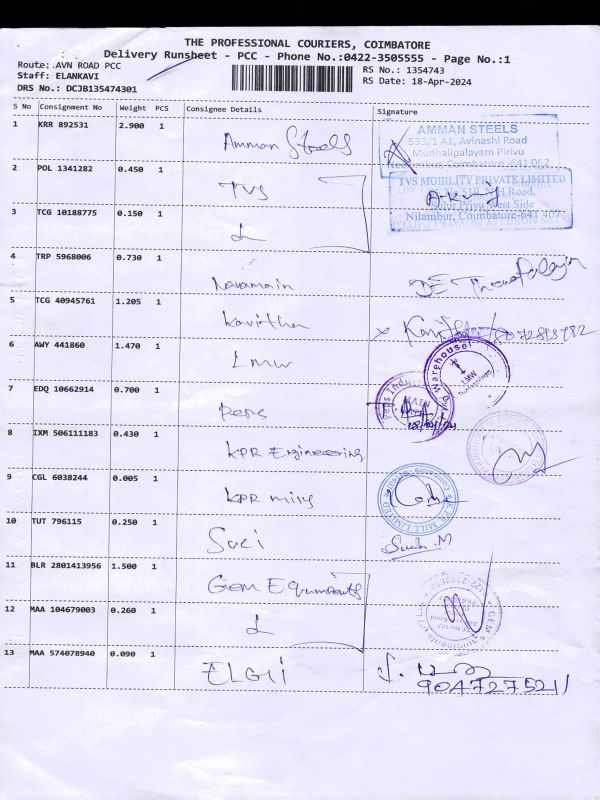 THE PROFESSIONAL COURIERS, COIMBATORE
Delivery Runsheet - PCC - Phone No.:0422-3505555 - Page No.:1
Route: AVN ROAD PCC
RS No.: 1354743
Staff: ELANKAVI
RS Date: 18-Apr-2024
DRS No.: DCJB135474301
S No Consignment No Weight PCS Consignee Details Signature
1 KRR 892531 2.900 1 Amman Steels
AMMAN STEELS
533/1 A1, Avinashi Road
Mudhalipalayam Pirivu
Coimbatore-641 062
2 POL 1341282 0.450 1 TVS
TVS MOBILITY PRIVATE LIMITED
Road,
West Side
Nilambur, Coimbatore-641 407
3 TCG 10188775 0.150 1
4 TRP 5968006 0.730 1
5 TCG 40945761 1.205 1 Kavitha
6 AWY 441860 1.470 1 LMW
Warehouse
LMW
7 EDQ 10662914 0.700 1
8 IXM 506111183 0.430 1 KPR Engineering
9 CGL 6038244 0.005 1 KPR
MILL LIMITED
10 TUT 796115 0.250 1
11 BLR 2801413956 1.500 1 Gem
12 MAA 104679003 0.260 1
13 MAA 574078940 0.090 1 ELGII
9047275211